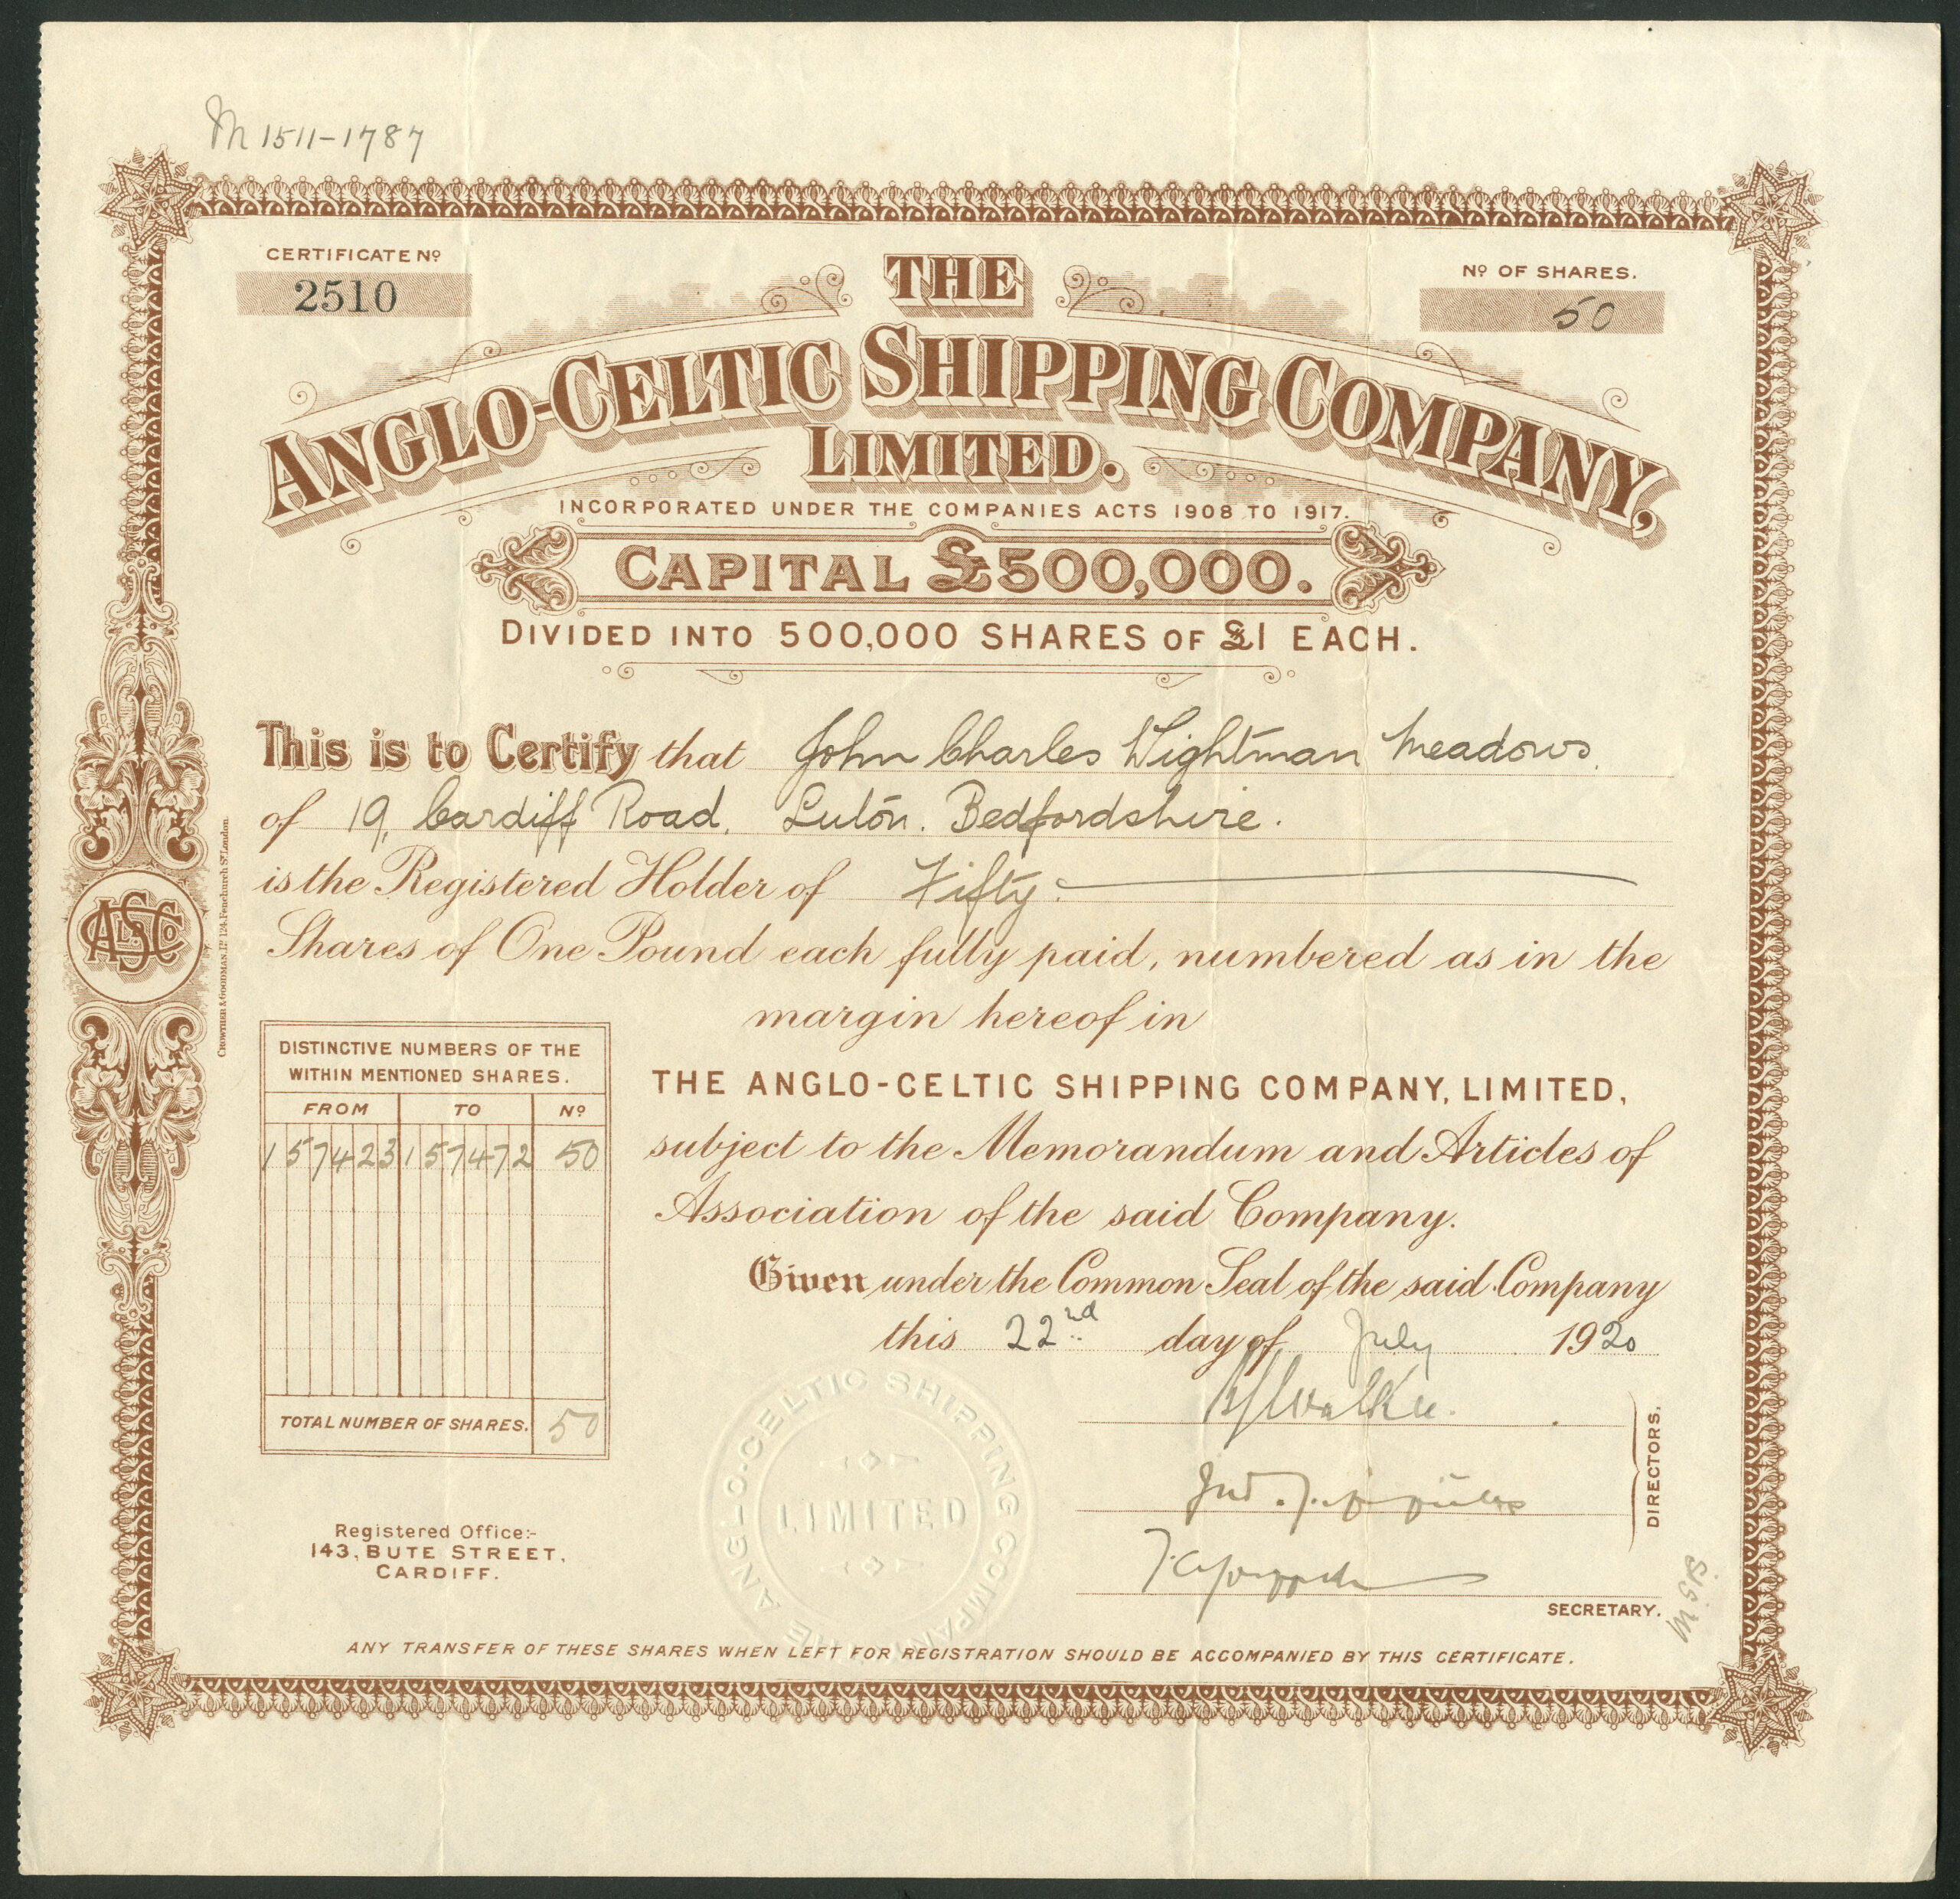 M 1511-1787
CERTIFICATE Nº
2510
Nº OF SHARES.
50
THE
ANGLO-CELTIC SHIPPING COMPANY,
LIMITED.
INCORPORATED UNDER THE COMPANIES ACTS 1908 TO 1917.
CAPITAL £500,000.
DIVIDED INTO 500,000 SHARES OF £1 EACH.
This is to Certify that John Charles Wightman Meadows.
of 19, Cardiff Road, Luton. Bedfordshire.
is the Registered Holder of Fifty
Shares of One Pound each fully paid, numbered as in the
margin hereof in
THE ANGLO-CELTIC SHIPPING COMPANY, LIMITED,
subject to the Memorandum and Articles of
Association of the said Company.
Given under the Common Seal of the said Company
this 22nd day of July 1920
DISTINCTIVE NUMBERS OF THE
WITHIN MENTIONED SHARES.
FROM TO Nº
157423 157472 50
TOTAL NUMBER OF SHARES. 50
ALSCo
CROWTHER & GOODMAN, LTD 124, Fenchurch St London.
THE ANGLO-CELTIC SHIPPING COMPANY
LIMITED
Walker.
DIRECTORS.
SECRETARY.
Registered Office:-
143, BUTE STREET,
CARDIFF.
ANY TRANSFER OF THESE SHARES WHEN LEFT FOR REGISTRATION SHOULD BE ACCOMPANIED BY THIS CERTIFICATE.